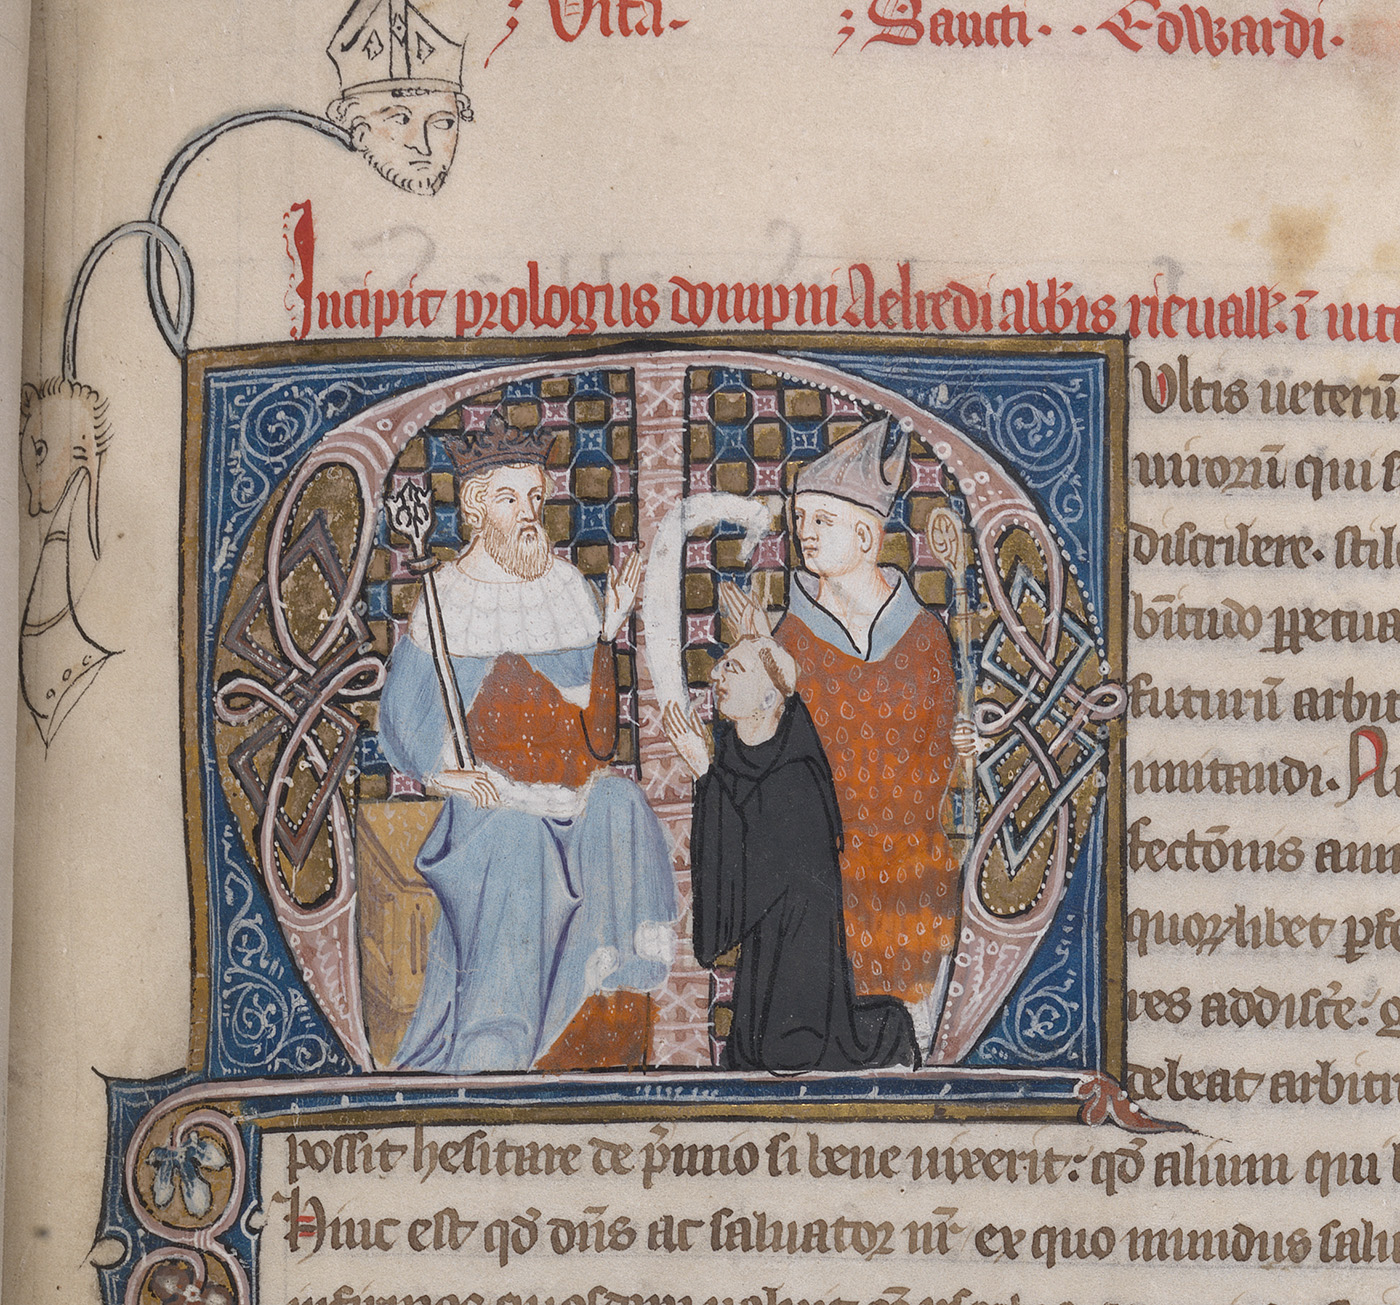 Vita. Sancti. Edwardi.
Incipit prologus dompni Aelredi abbis rieuall. ī uit
Ultis ueterū
uirorū qui s
discribere. stil
bītudo ꝑpetua
futurū arbi
imitandi. A
fectōnis ann
quorꝝlibet
res addiscē:
debeat arbit
possit hesitare de p̄mio si bene uixerit: qd̄ alium qui
Hinc est qd̄ dn̄s ac saluator nr̄ ex quo mundus salu